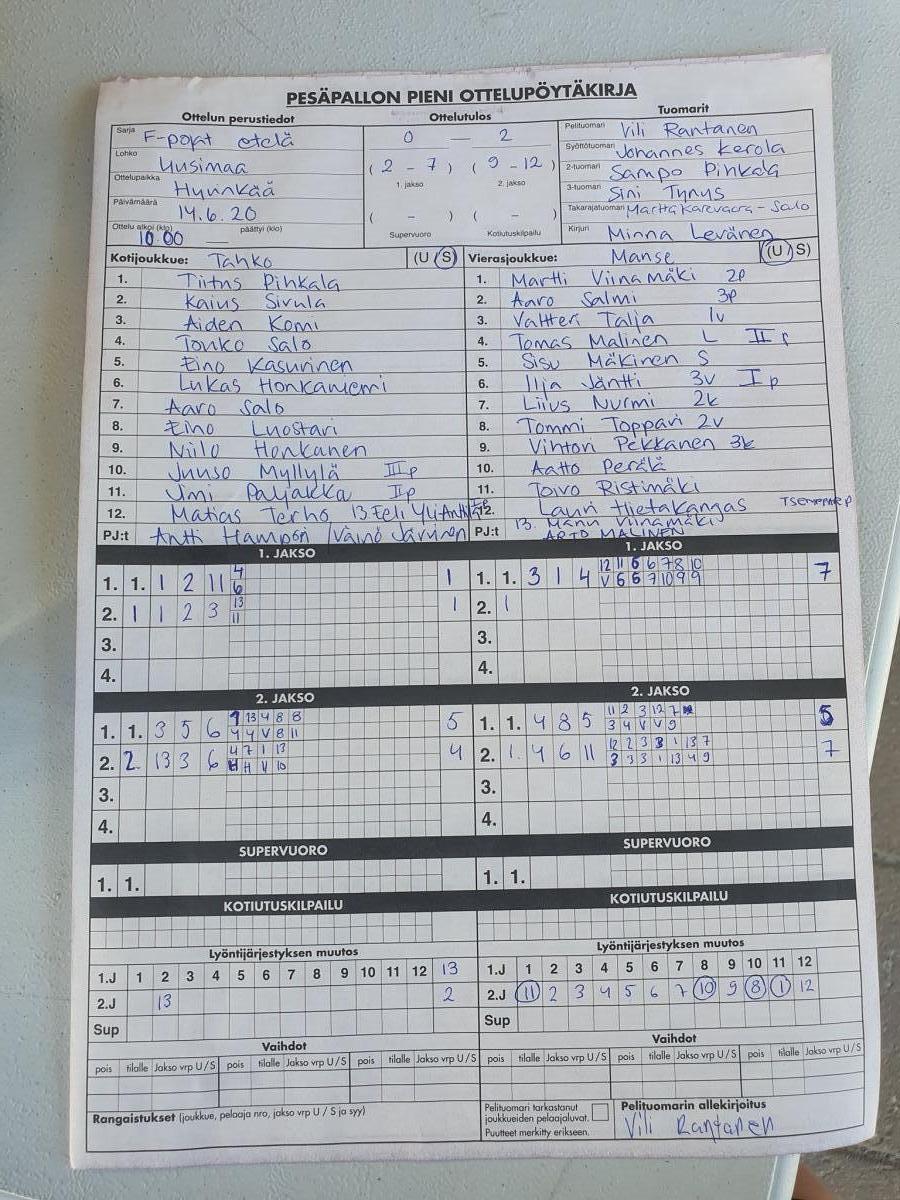 PESÄPALLON PIENI OTTELUPÖYTÄKIRJA
Ottelun perustiedot
Sarja F-pojat otelä
Lohko Uusimaa
Ottelupaikka Hyvinkää
Päivämäärä 14.6.20
Ottelu alkoi (klo) 10.00 päättyi (klo)
Ottelutulos
0 — 2
(2 - 7) (9 - 12)
1. jakso 2. jakso
( - ) ( - )
Supervuoro Kotiutuskilpailu
Tuomarit
Pelituomari Vili Rantanen
Syöttötuomari Johannes Kerola
2-tuomari Sampo Pihkala
3-tuomari Sini Tynys
Takarajatuomari Martta Karevaara-Salo
Kirjuri Minna Levänen
Kotijoukkue: Tahko (U S)
1. Tiitus Pihkala
2. Kaius Sivula
3. Aiden Komi
4. Touko Salo
5. Eino Kasurinen
6. Lukas Honkaniemi
7. Aaro Salo
8. Eino Luostari
9. Niilo Honkanen
10. Juuso Myllylä III p
11. Jimi Paljakka I p
12. Matias Terho 13 Eeli Yli-Anttila
PJ:t Antti Hampori Väinö Järvinen
Vierasjoukkue: Manse (U S)
1. Martti Viinamäki 2p
2. Aaro Salmi 3p
3. Valtteri Talja 1v
4. Tomas Malinen L II p
5. Sisu Mäkinen S
6. Ilja Jäntti 3v I p
7. Liius Nurmi 2k
8. Tommi Toppari 2v
9. Vihtori Pekkanen 3k
10. Aatto Perälä
11. Toivo Ristimäki
12. Lauri Hietakangas
13. Manu Viinamäki
PJ:t ARTO MALINEN
1. JAKSO
1. 1. 1 2 11 4 1
6
2. 1 1 2 3 13 1
11
3.
4.
1. JAKSO
1. 1. 3 1 4 12 11 6 6 7 8 10 7
V 6 6 7 10 9 9
2. 1
3.
4.
2. JAKSO
1. 1. 3 5 6 1 13 4 8 8 5
4 4 V 8 11
2. 2 13 3 6 4 7 1 13 4
4 4 V 10
3.
4.
2. JAKSO
1. 1. 4 8 5 11 2 3 12 7 5
3 4 V V 9
2. 1. 4 6 11 12 2 3 3 1 13 7 7
3 3 3 1 13 4 9
3.
4.
SUPERVUORO
1. 1.
SUPERVUORO
1. 1.
KOTIUTUSKILPAILU
KOTIUTUSKILPAILU
Lyöntijärjestyksen muutos
1.J 1 2 3 4 5 6 7 8 9 10 11 12 13
2.J 13 2
Sup
Lyöntijärjestyksen muutos
1.J 1 2 3 4 5 6 7 8 9 10 11 12
2.J 11 2 3 4 5 6 7 10 9 8 1 12
Sup
Vaihdot
pois tilalle Jakso vrp U/S pois tilalle Jakso vrp U/S pois tilalle Jakso vrp U/S
Vaihdot
pois tilalle Jakso vrp U/S pois tilalle Jakso vrp U/S pois tilalle Jakso vrp U/S
Rangaistukset (joukkue, pelaaja nro, jakso vrp U / S ja syy)
Pelituomari tarkastanut
joukkueiden pelaajaluvat.
Puutteet merkitty erikseen.
Pelituomarin allekirjoitus
Vili Rantanen